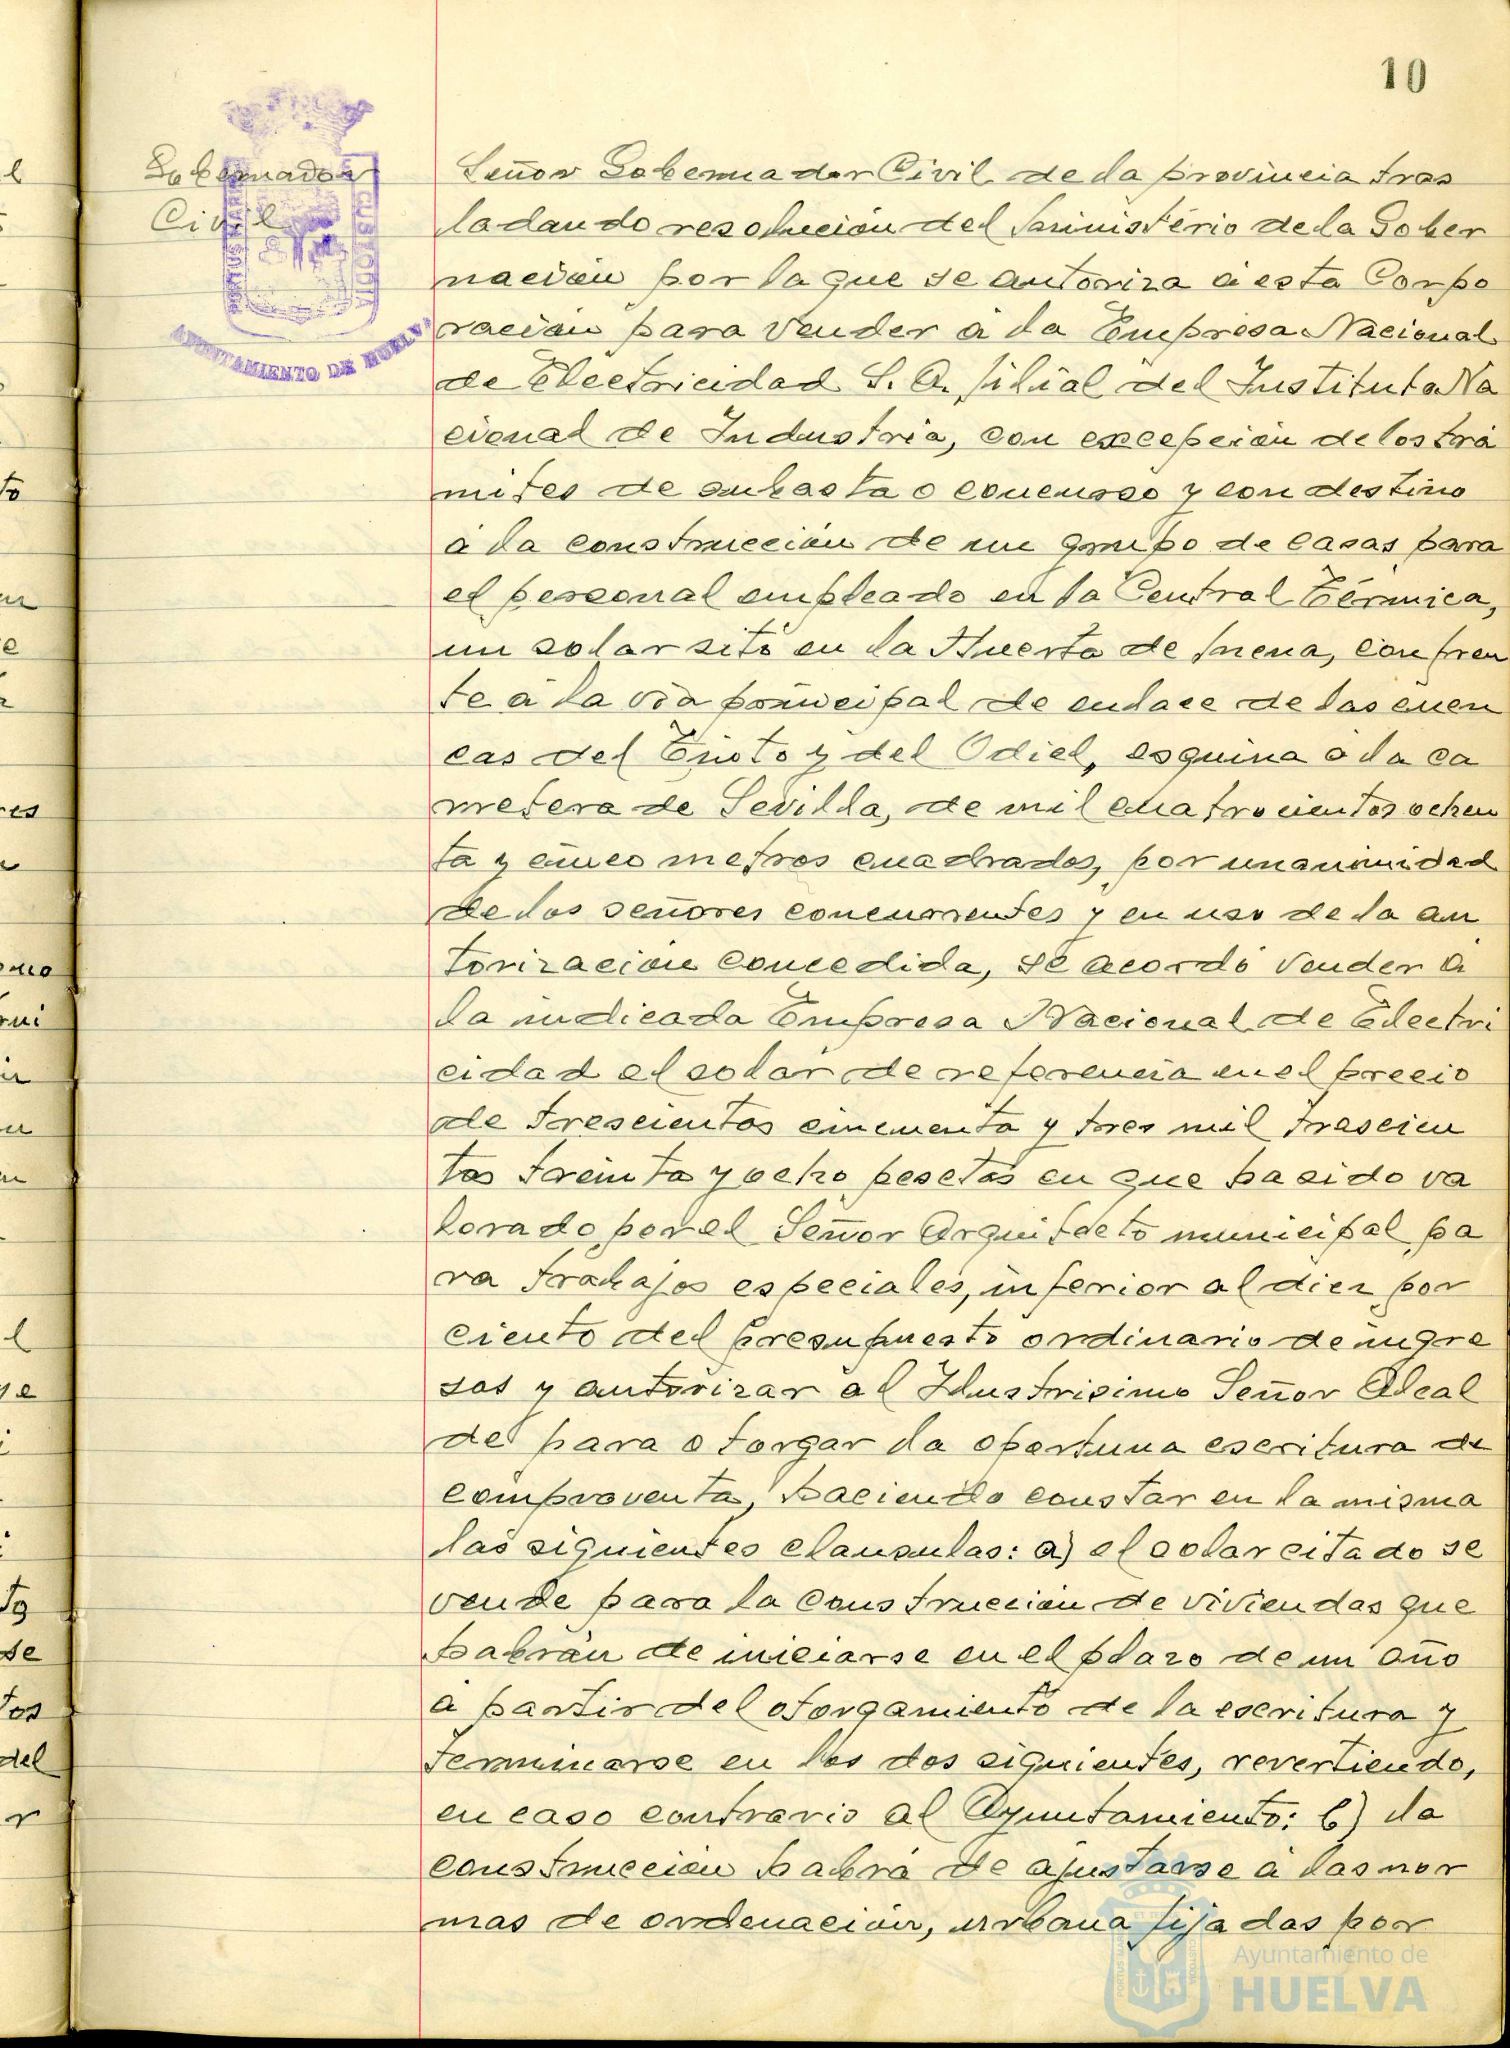 10
Gobernador
Civil
PORTUS MARIS
CUSTODIA
AYUNTAMIENTO DE HUELVA
Señor Gobernador Civil de la provincia tras
ladando resolución del Ministério de la Gober
nación por la que se autoriza á esta Corpo
ración para vender á la Empresa Nacional
de Electricidad S. A. filial del Instituto Na
cional de Industria, con excepción de los trá
mites de subasta o concurso y con destino
á la construcción de un grupo de casas para
el personal empleado en la Central Térmica,
un solar sito en la Huerta de Mena, con fren
te á la via principal de enlace de las cuen
cas del Tinto y del Odiel, esquina á la ca
rretera de Sevilla, de mil cuatrocientos ochen
ta y cinco metros cuadrados, por unanimidad
de los señores concurrentes y en uso de la au
torización concedida, se acordó vender á
la indicada Empresa Nacional de Electri
cidad el solar de referencia en el precio
de trescientos cincuenta y tres mil trescien
tas treinta y ocho pesetas en que ha sido va
lorado por el Señor Arquitecto municipal pa
ra trabajos especiales, inferior al diez por
ciento del presupuesto ordinario de ingre
sos y autorizar al Ilustrisimo Señor Alcal
de para otorgar la oportuna escritura de
compraventa, haciendo constar en la misma
las siguientes clausulas: a) el solar citado se
vende para la construcción de viviendas que
habrán de iniciarse en el plazo de un año
á partir del otorgamiento de la escritura y
terminarse en los dos siguientes, revertiendo,
en caso contrario al Ayuntamiento: b) la
construcción habrá de ajustarse á las nor
mas de ordenación, urbana fijadas por
Ayuntamiento de
HUELVA